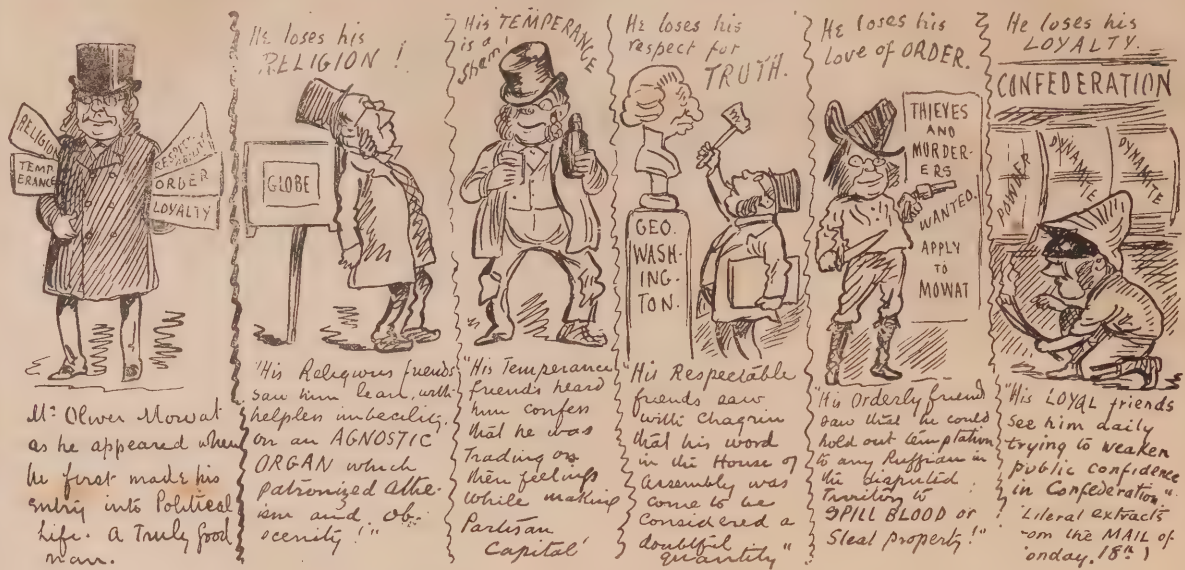 RELIGION
TEMP
ERANCE
RESPECT-
ABILITY
ORDER
LOYALTY
Mr. Oliver Mowat
as he appeared when
he first made his
entry into Political
Life. A Truly good
man.
He loses his
RELIGION!
GLOBE
"His Religious friends
saw him lean, with
helpless imbecility,
on an AGNOSTIC
ORGAN which
patronized Athe-
ism and ob-
scenity!"
His TEMPERANCE
is a
sham!
"His Temperance
friends heard
him confess
that he was
Trading on
their feelings
while making
Partisan
Capital'
He loses his
respect for
TRUTH.
GEO.
WASH-
ING-
TON.
"His Respectable
friends saw
with chagrin
that his word
in the House of
Assembly was
come to be
considered a
doubtful
quantity"
He loses his
love of ORDER.
THIEVES
AND
MURDER-
ERS
WANTED.
APPLY
TO
MOWAT
"His Orderly friends
saw that he could
hold out temptation
to any Ruffian in
the disputed
Territory to
SPILL BLOOD or
Steal property!"
He loses his
LOYALTY.
CONFEDERATION
POWDER
DYNAMITE
DYNAMITE
"His LOYAL friends
see him daily
trying to weaken
public confidence
in Confederation"
Literal extracts
rom the MAIL of
onday, 18th)